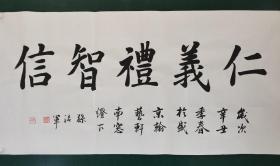 仁義禮智信
歲次
辛丑
季春
於盛
京翰
藝軒
南窗
燈下
孫法
軍